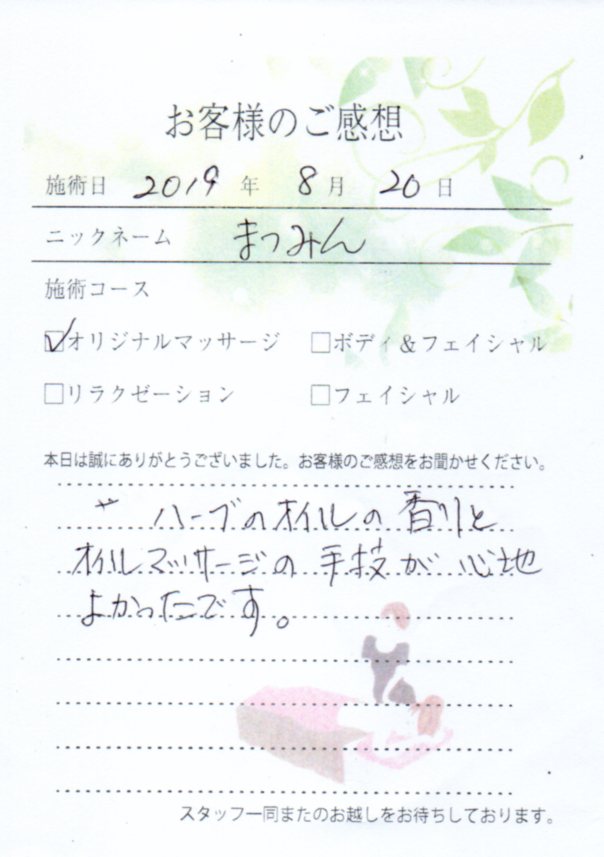 お客様のご感想
施術日 2019 年 8 月 20 日
ニックネーム まつみん
施術コース
☑オリジナルマッサージ □ボディ&フェイシャル
□リラクゼーション □フェイシャル
本日は誠にありがとうございました。お客様のご感想をお聞かせください。
ハーブのオイルの香りと
オイルマッサージの手技が心地
よかったです。
スタッフ一同またのお越しをお待ちしております。